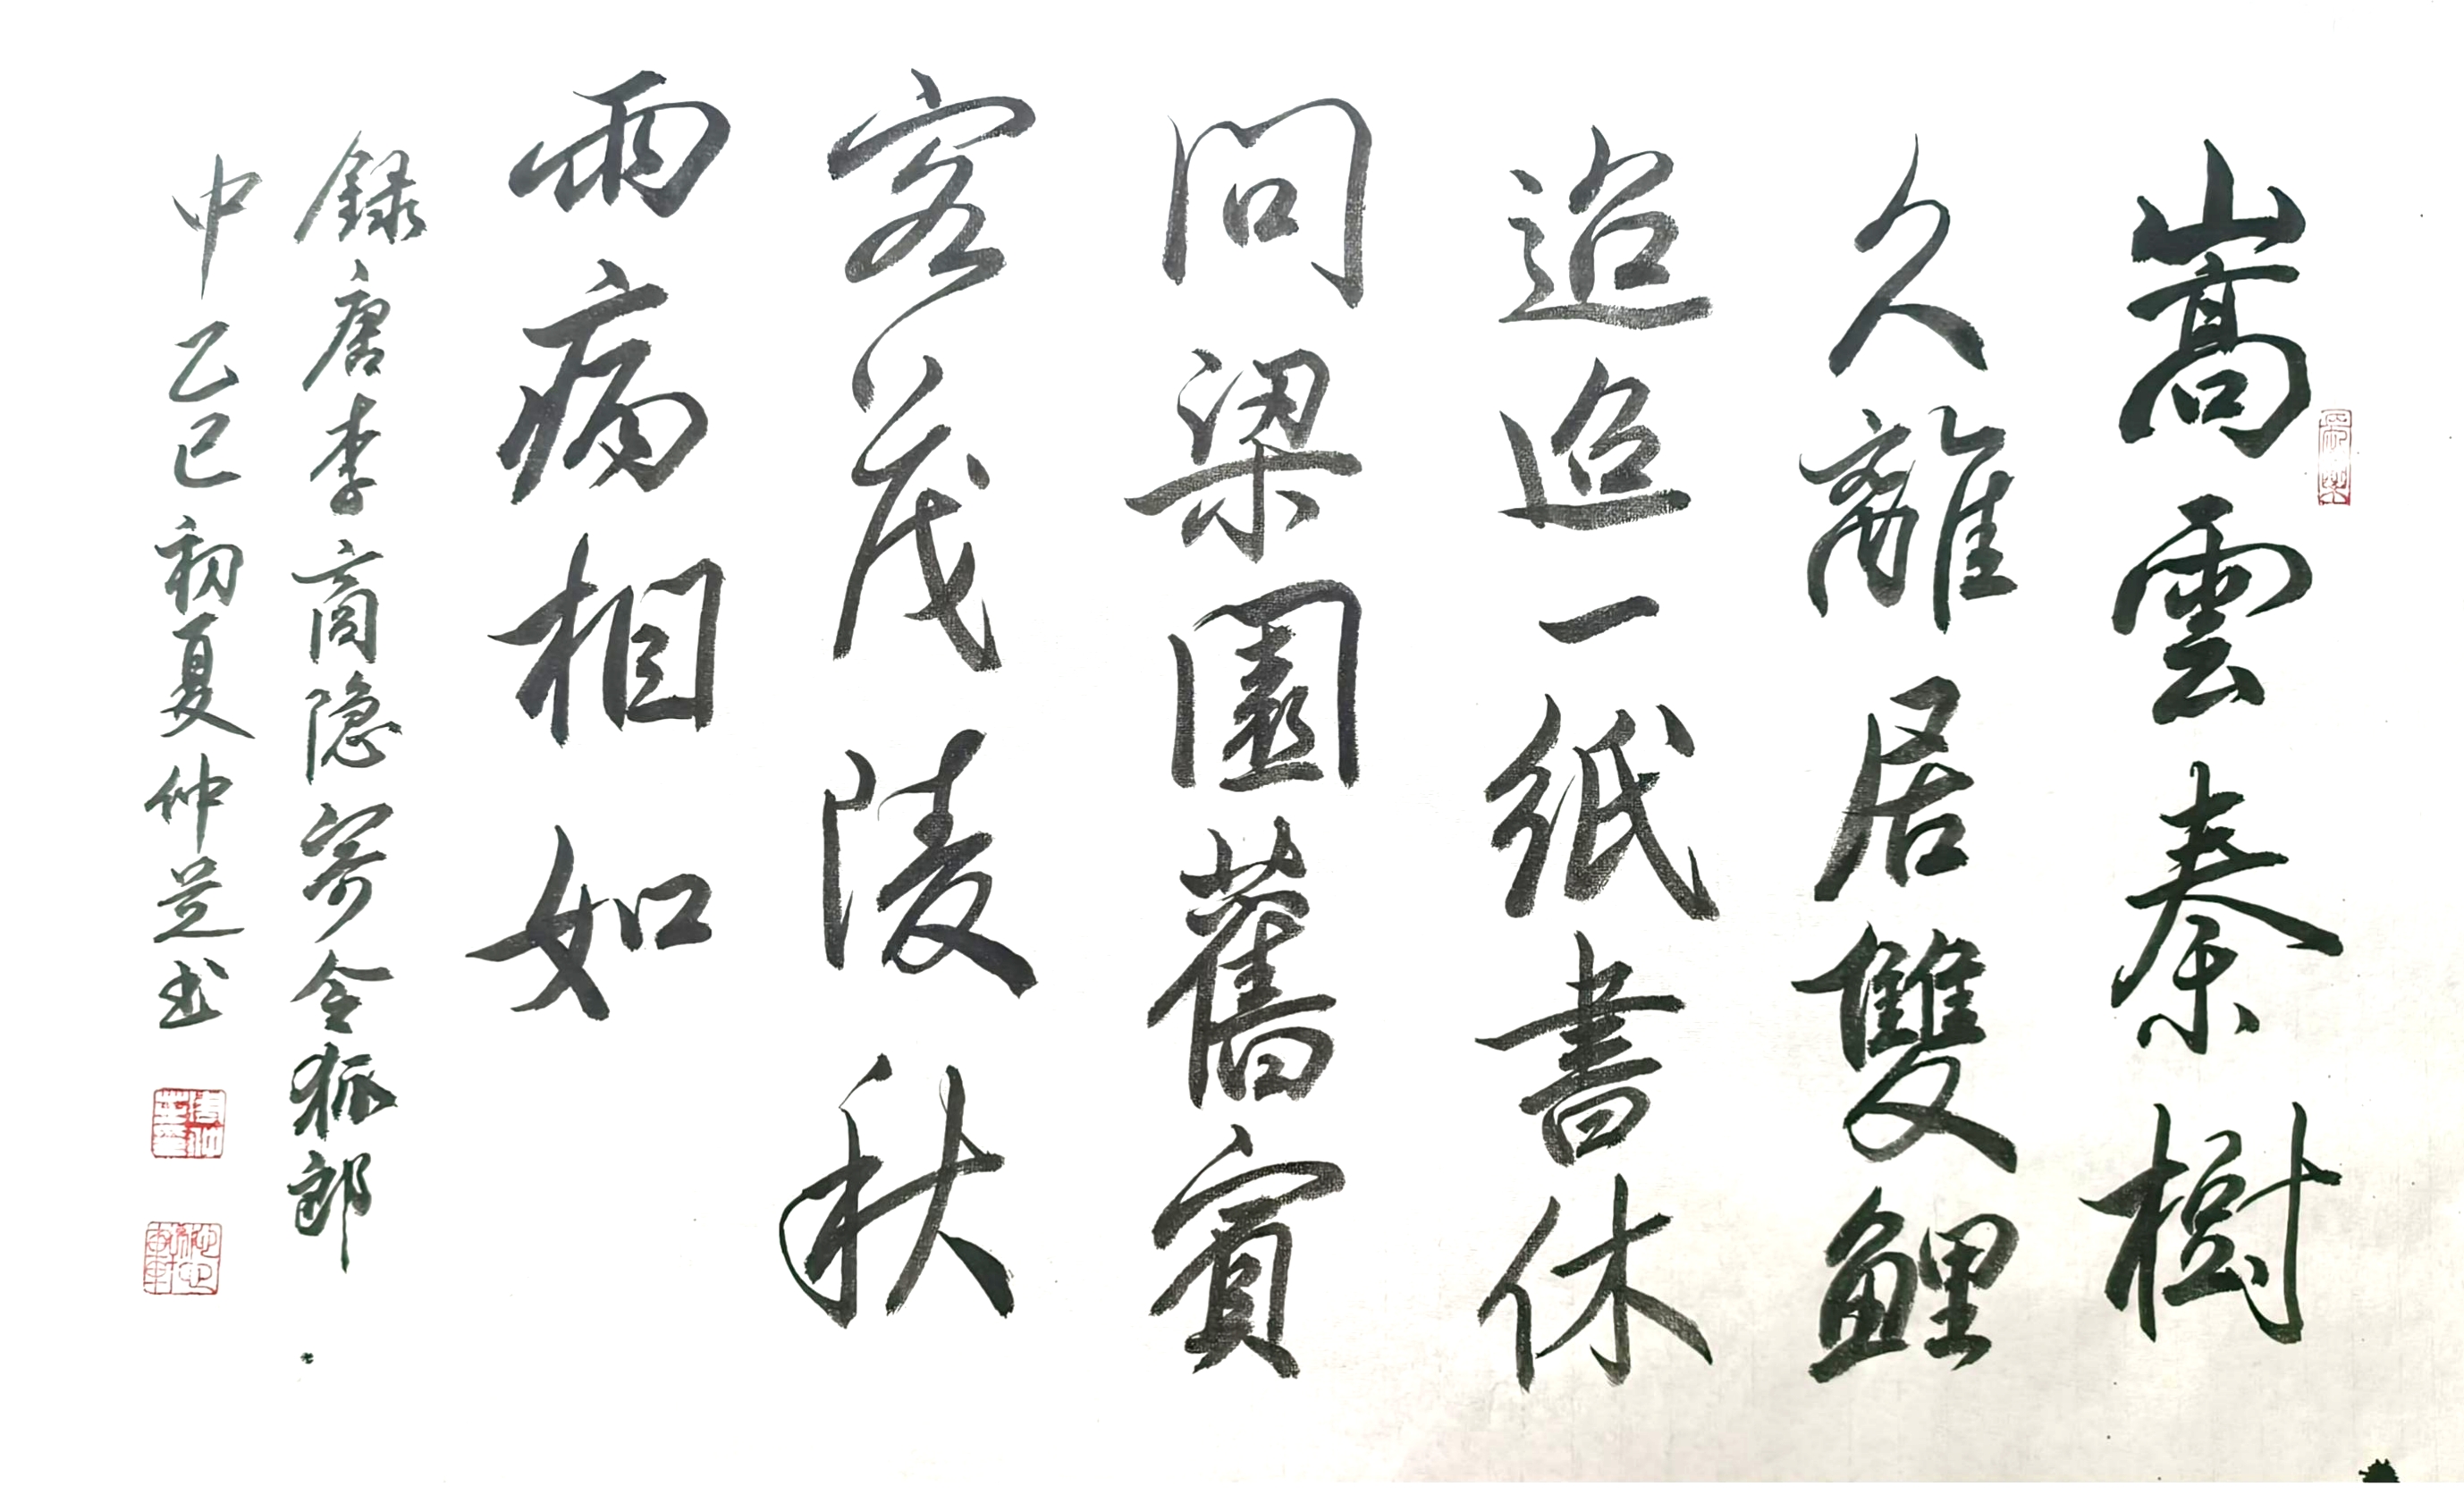 嵩雲秦樹
久離居雙鯉
迢迢一紙書休
問梁園舊賓
客茂陵秋
雨病相如
録唐李商隐寄令狐郎
中乙巳初夏仲芝书